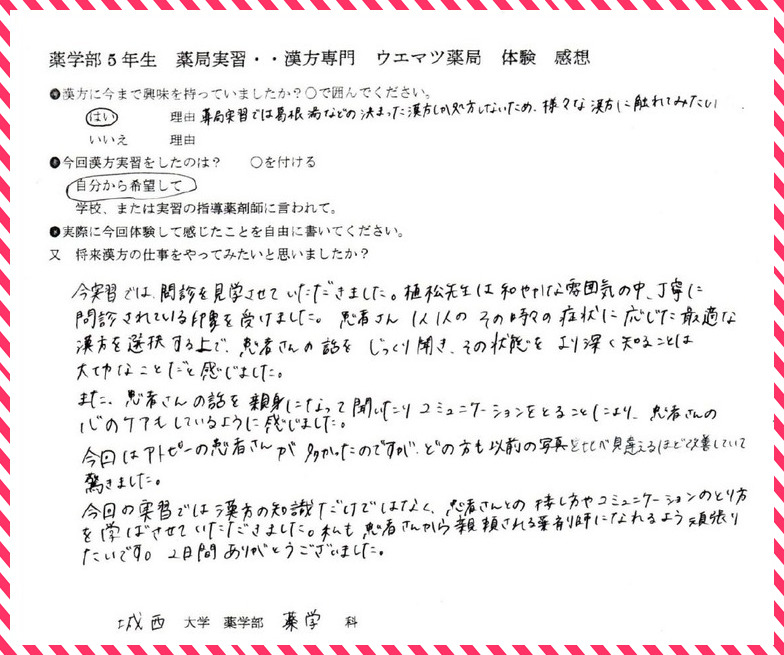 薬学部5年生　薬局実習・・漢方専門　ウエマツ薬局　体験　感想
●漢方に今まで興味を持っていましたか？○で囲んでください。
はい　理由　薬局実習では葛根湯などの決まった漢方しか処方しないため、様々な漢方に触れてみたい
いいえ　理由
●今回漢方実習をしたのは？　○を付ける
自分から希望して
学校、または実習の指導薬剤師に言われて。
●実際に今回体験して感じたことを自由に書いてください。
又　将来漢方の仕事をやってみたいと思いましたか？
今実習では、問診を見学させていただきました。植松先生は和やかな雰囲気の中、丁寧に
問診されている印象を受けました。患者さん1人1人のその時々の症状に応じた最適な
漢方を選択する上で、患者さんの話をじっくり聞き、その状態をより深く知ることは
大切なことだと感じました。
また、患者さんの話を親身になって聞いたりコミュニケーションをとることにより、患者さんの
心のケアもしているように感じました。
今回はアトピーの患者さんが多かったのですが、どの方も以前の写真と比べ見違えるほど改善していて
驚きました。
今回の実習では漢方の知識だけではなく、患者さんとの接し方やコミュニケーションのとり方
を学ばさせていただきました。私も患者さんから親頼される薬剤師になれるよう頑張り
たいです。2日間ありがとうございました。
城西　大学　薬学部　薬学　科